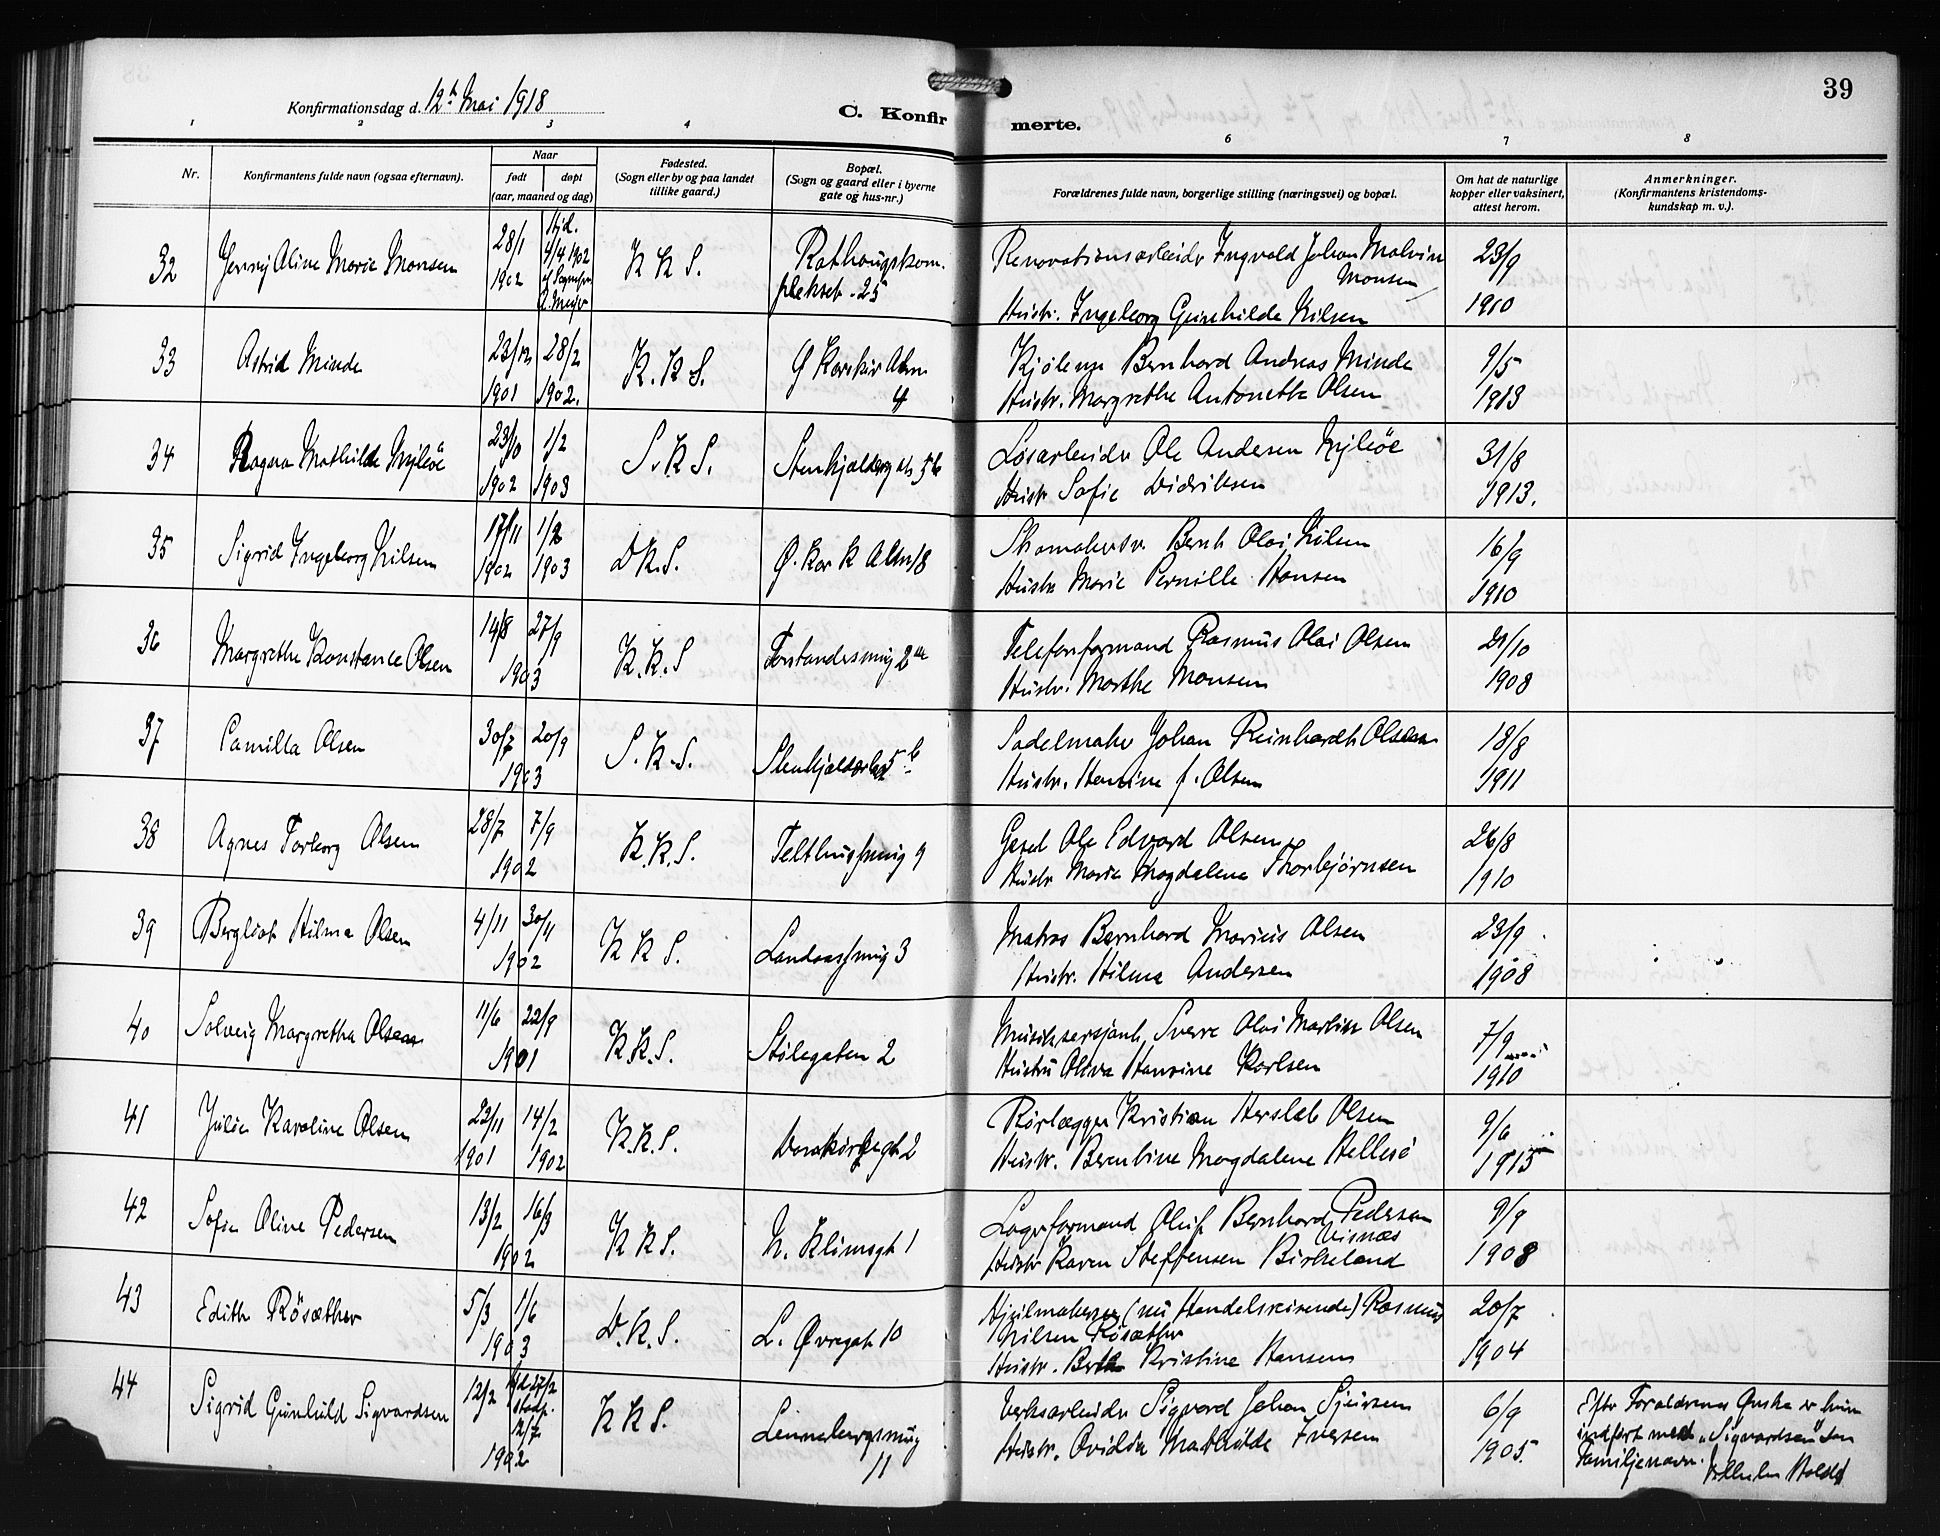 39
Konfirmationsdag d. 12te Mai 1918
C. Konfirmerte.
1 2 3 4 6 7 8
Nr.
Konfirmantens fulde navn (ogsaa efternavn).
Naar
født
døpt
(aar, maaned og dag)
Fødested.
(Sogn eller by og paa landet
tillike gaard.)
Bopæl.
(Sogn og gaard eller i byerne
gate og hus-nr.)
Forældrenes fulde navn, borgerlige stilling (næringsvei) og bopæl.
Om hat de naturlige
kopper eller vaksinert,
attest herom.
Anmerkninger.
(Konfirmantens kristendoms-
kundskap m. v.).
32 Jenny Aline Marie Monsen
28/1 1902
Hjd. 4/4 1902
K K S.
Rothaugskom.
plekset. 25
Renovationsarbeider Ingvald Johan Malvin
Monsen
Hustr. Ingeborg Gunhilde Nilsen
23/9
1910
33 Astrid Minde
23/12 1901
28/2 1902.
K. K S.
Ø Korskir Alm
4
Kjølemp Bernhard Andreas Minde
Hustr. Margrethe Antonette Olsen
9/5
1913
34 Ragna Mathilde Myhöe
23/10 1902
1/2 1903
S. K S.
Stenkjelderg. 5b
Løsarbeider Ole Andersen Myhöe
Hustr Sofie Didriksen
31/8
1913.
35 Sigrid Ingeborg Nilsen
17/11 1902
1/2 1903
D K. S.
Ø. Kor K Alm 18
Skomakersv. Bernt Olai Nilsen
Hustr Marie Pernille Hansen
16/9
1910
36 Margrethe Konstance Olsen
14/8 27/9
1903
K. K. S
Forstandersmug 2
Telefonformand Rasmus Olai Olsen
Hustr. Marthe Monsen
21/10
1908
37 Camilla Olsen
30/7 20/9
1903
S. K. S.
Stenkjelderb 5b
Sadelmaker Johan Reinhardt Olsen
Hustr. Hansine f. Olsen
18/8
1911
38 Agnes Torborg Olsen
28/7 7/9
1902
K. K. S.
Telthussmug 9
Gesel Ole Edvard Olsen
Hustr Marie Magdalene Thorbjørnsen
26/8
1910
39 Bergliot Hilma Olsen
4/11 30/11
1902
K K S.
Landaassmug 3
Matros Bernhard Marius Olsen
Hustr. Hilma Andersen
23/9
1908
40 Solveig Margretha Olsen
11/6 22/9
1901
K. K. S.
Stølegaten 2
Musiksersjant, Sverre Olai Martin Olsen
Hustru Oliva Hansine Karlsen
7/9
1910
41 Julie Karoline Olsen
22/11 1901
14/2 1902
K. K. S.
Domkirkegt 2
Rørlægger Kristian Hersleb Olsen
Hustr. Berntine Magdalene Hellesö
9/6
1913
42 Sofie Olive Pedersen
13/2 16/3
1902
K K S.
N. Klimsgt 1
Lagerformand Oluf Bernhard Pedersen
Visnæs
Hustr Karen Steffensen Birkeland
9/9
1908
43 Edith Rösæther
5/3 1/6
1903
D. K. S.
L. Øvregat 10
Hjulmakersv (nu Handelsreisende) Rasmus
Nilsen Rösæther
Hustr. Kristine Hansen
20/7
1904
44 Sigrid Gunhild Sigvardsen
12/2
1902
K K S.
Lennebergsmug
11
Verksarbeider Sigvard Johan Sjursen
Hustr. Ovidia Mathilde Iversen
6/9
1905.
Efter Forældrenes Ønske er hun
indført med „Sigvardsen" som
Familjenavn.